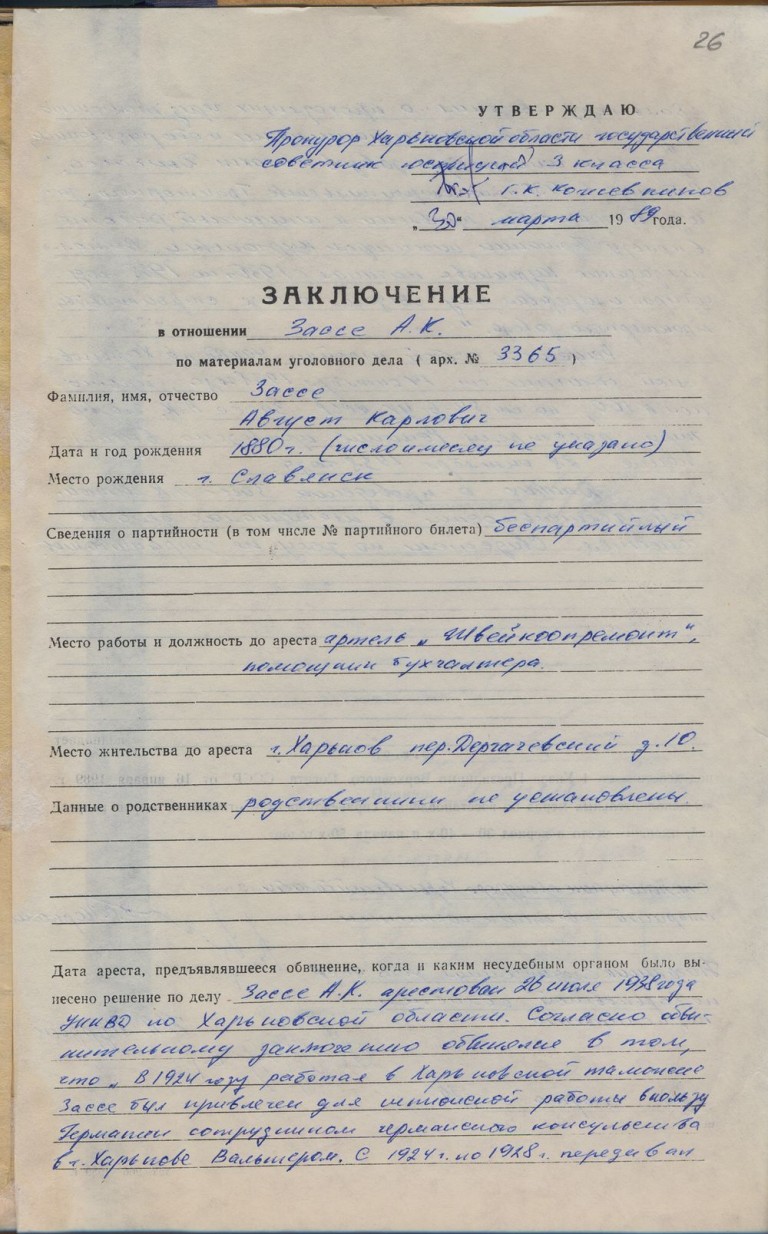 26
УТВЕРЖДАЮ
Прокурор Харьковской области государственный
советник юстиции 3 класса
Г.К. Кожевников
„30" марта 1989 года.
ЗАКЛЮЧЕНИЕ
в отношении Зассе А.К.
по материалам уголовного дела ( арх. № 3365 )
Фамилия, имя, отчество Зассе
Август Карлович
Дата и год рождения 1880 г. (число и месяц не указано)
Место рождения г. Славянск
Сведения о партийности (в том числе № партийного билета) беспартийный
Место работы и должность до ареста артель „Швейкоопремонт",
помощник бухгалтера.
Место жительства до ареста г. Харьков пер. Дергачевский д. 10.
Данные о родственниках родственники не установлены.
Дата ареста, предъявлявшееся обвинение, когда и каким несудебным органом было вы-
несено решение по делу Зассе А.К. арестован 26 июля 1938 года
УНКВД по Харьковской области. Согласно обви-
нительному заключению обвинялся в том,
что „В 1924 году работая в Харьковской таможне
Зассе был привлечен для шпионской работы в пользу
Германии сотрудником германского консульства
в г. Харькове Вальтером. С 1924 г. по 1928 г. передавал